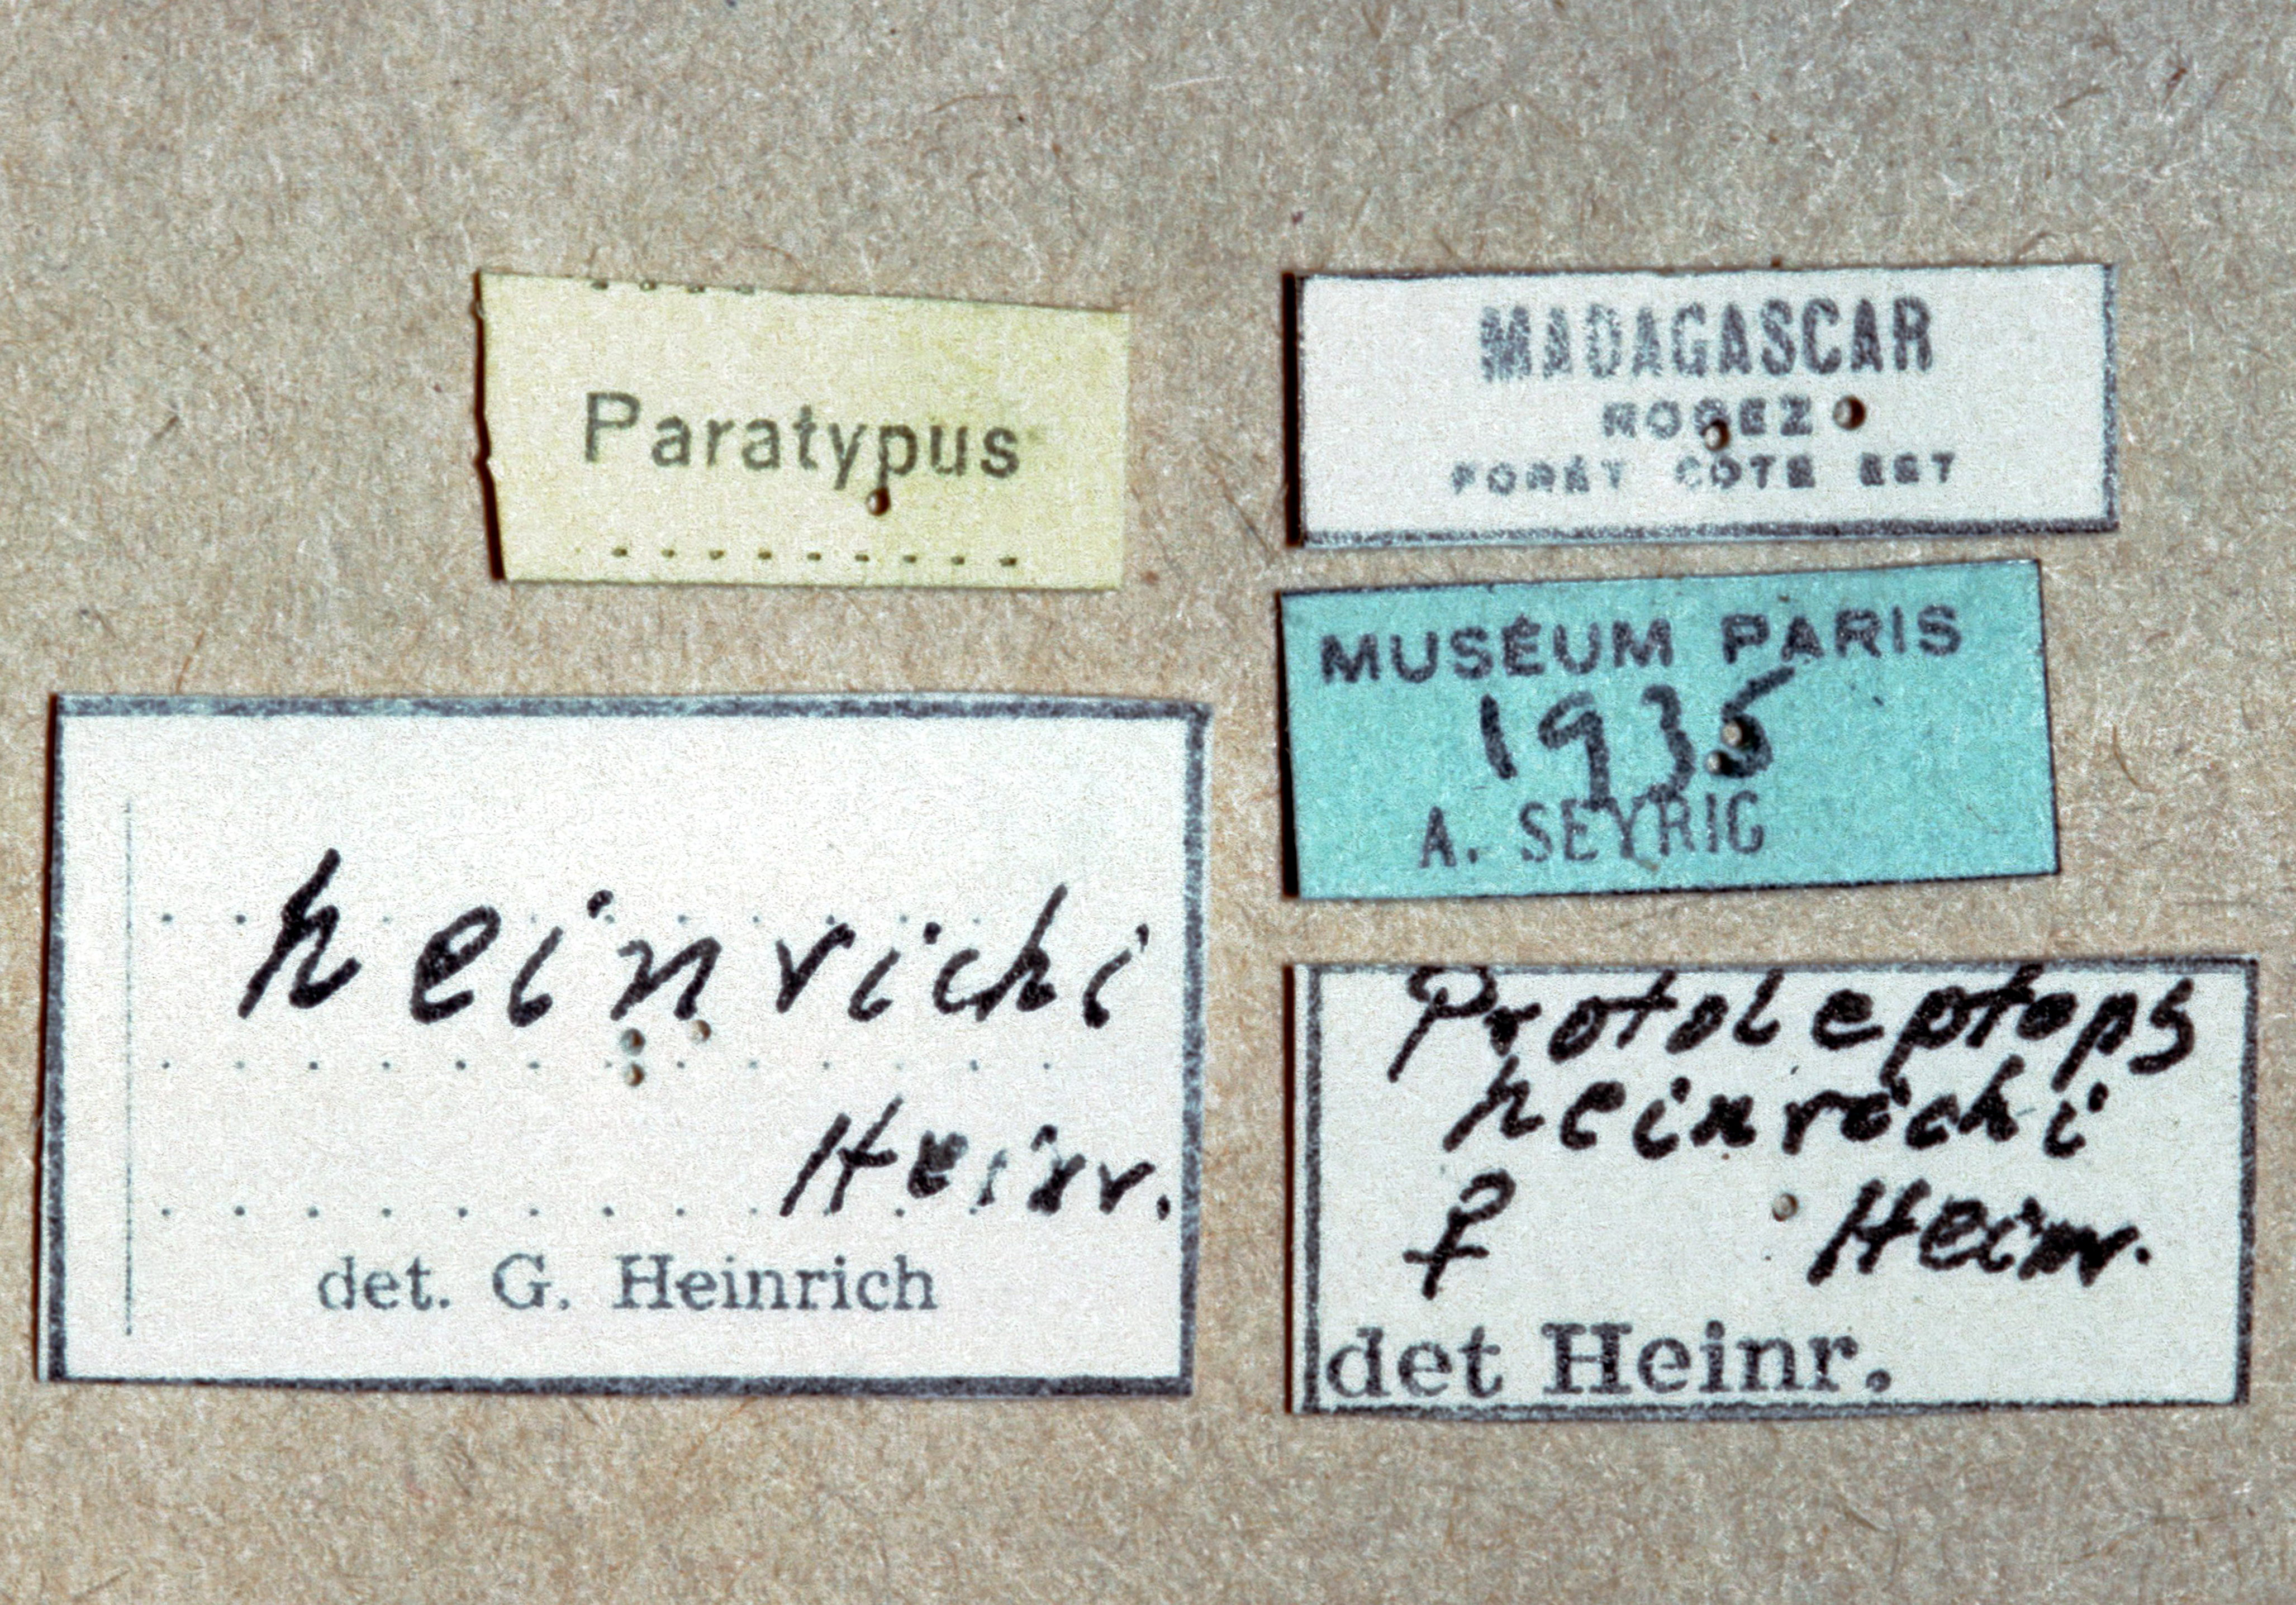 Paratypus
MADAGASCAR
ROGEZ
FORÊT CÔTE EST
MUSÉUM PARIS
1935
A. SEYRIG
heinrichi
Heinr.
det. G. Heinrich
Protoleptops
heinrichi
♀ Heinr.
det Heinr.